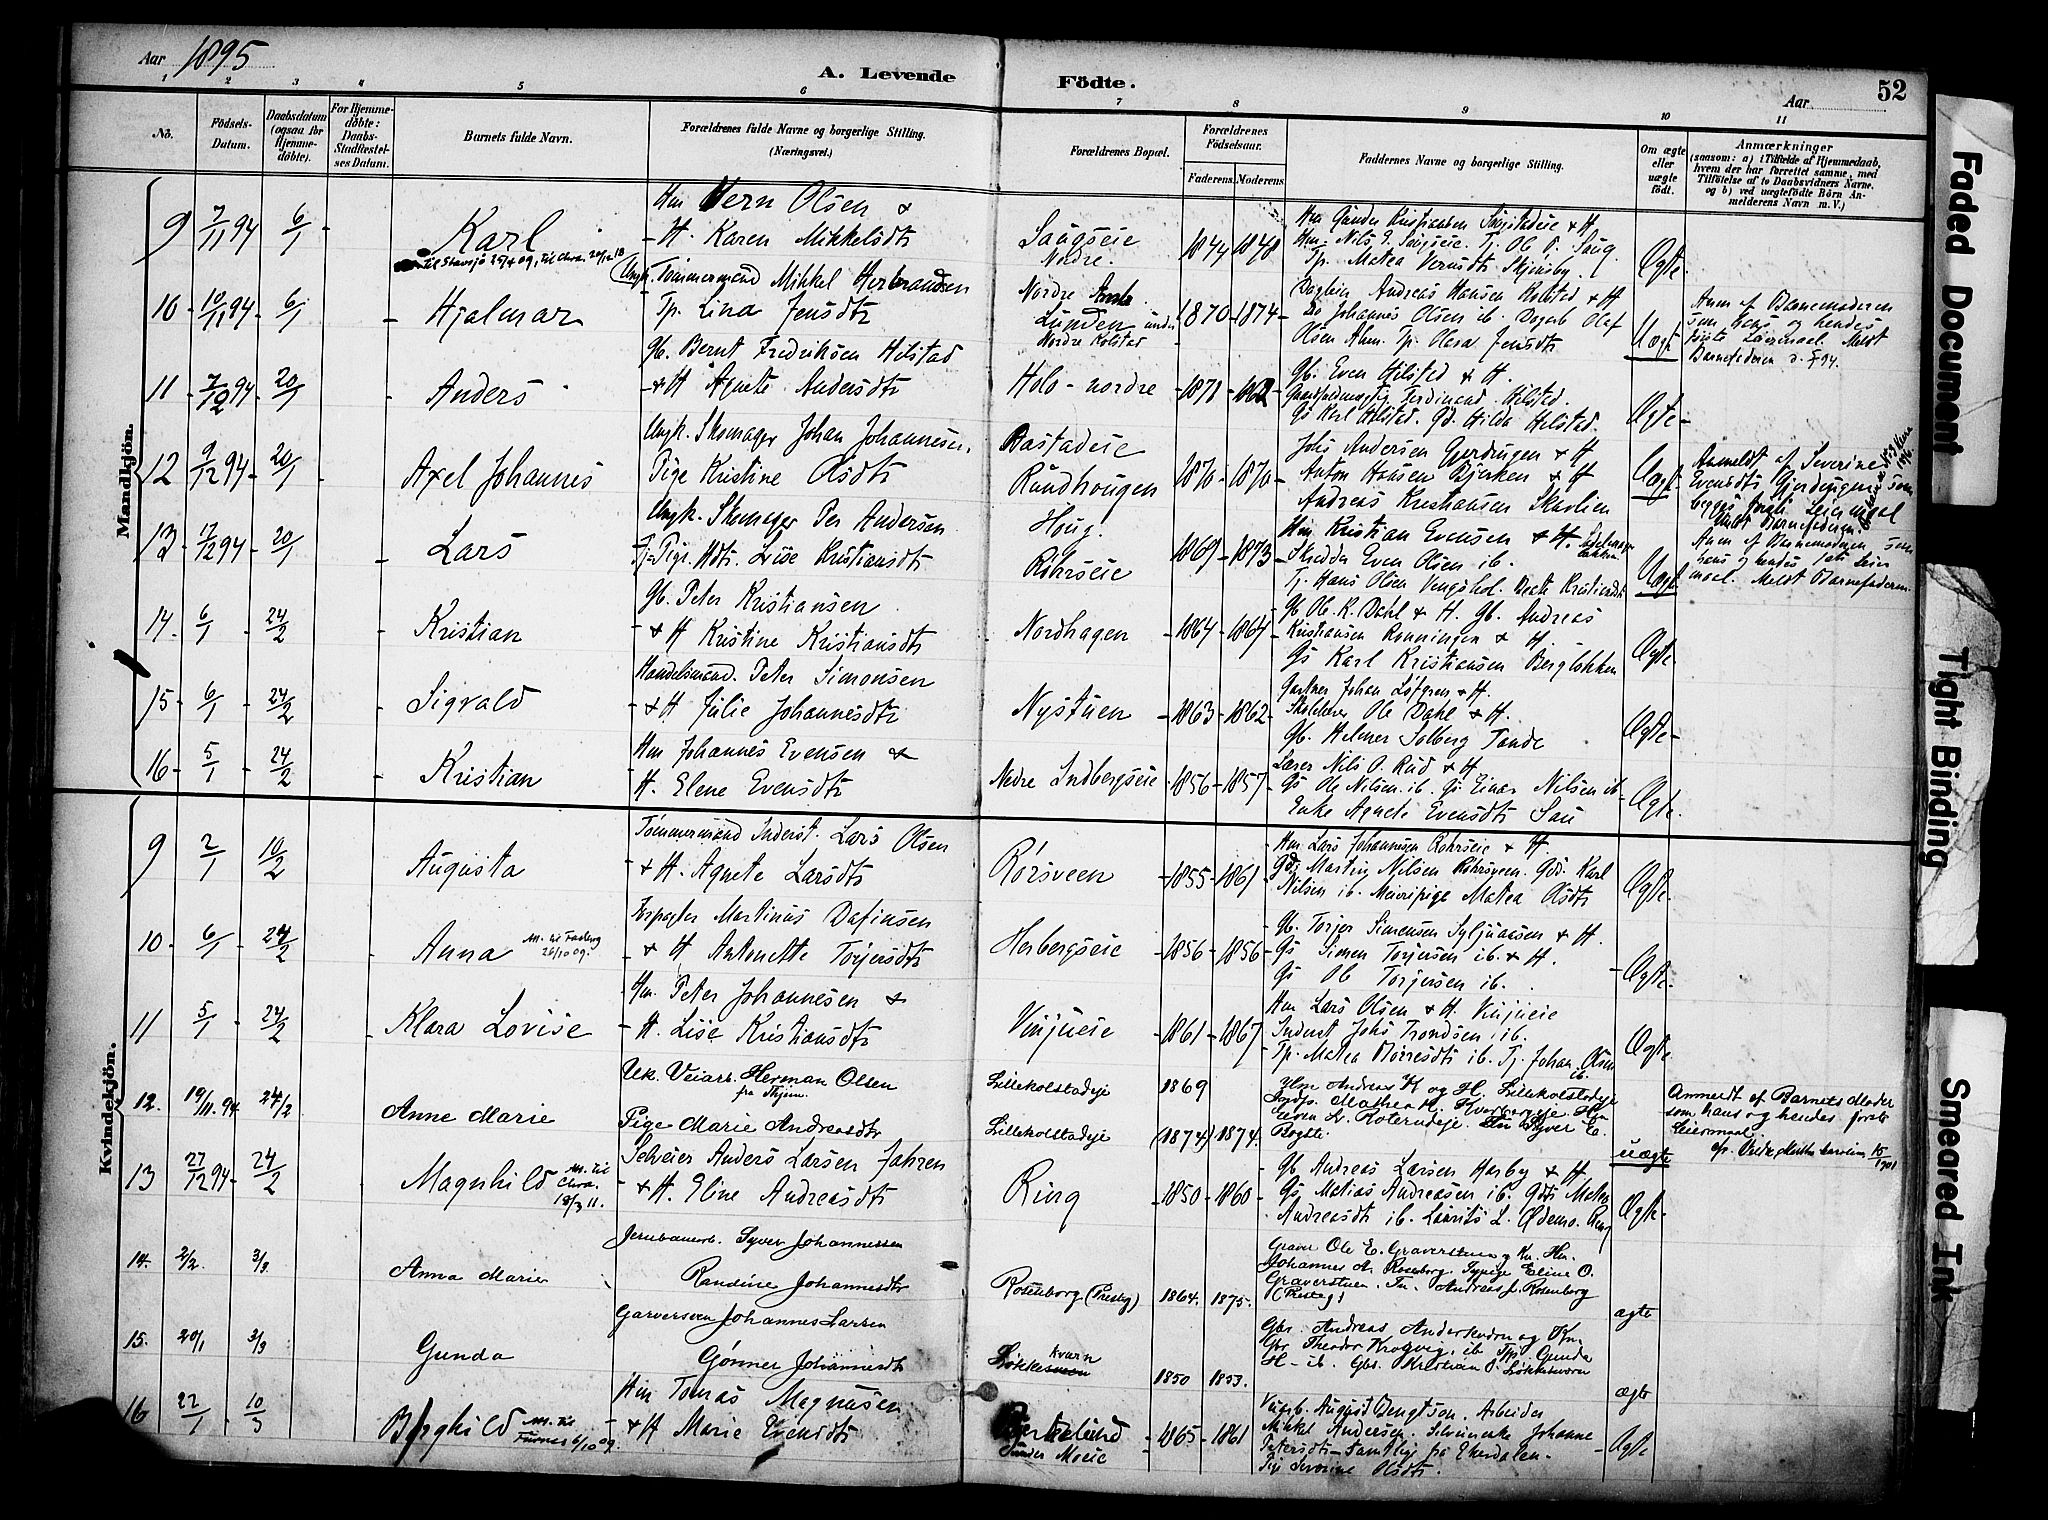 Aar 1895
A. Levende Födte.
Aar
52
1 2 3 4 5 6 7 8 9 10 11
No.
Födsels-Datum.
Daabsdatum (ogsaa for Hjemmedöbte).
For Hjemmedöbte: Daabs-Stadfæstelses Datum.
Barnets fulde Navn.
Forældrenes fulde Navne og borgerlige Stilling. (Næringsvei.)
Forældrenes Bopæl.
Forældrenes Födselsaar.
Faderens. Moderens.
Faddernes Navne og borgerlige Stilling.
Om ægte eller uægte født.
Anmærkninger
(saasom: a) i Tilfælde af Hjemmedaab, hvem der har forrettet samme, med Tilföielse af to Daabsvidners Navne, og b) ved uægtefödte Börn Anmelderens Navn m. V.)
Mandkjön.
9 7/11 94 6/1 Karl
Hm Vern Olsen &
H. Karen Mikkelsdtr
Saugseie Nordre.
1844 - 1848
Hm. Nils E. Saugseie. Tj. Ole O. Saug.
Tp. Matea Vernsdtr Skjønsby.
Ægte.
10 10/11 94 6/1 Hjalmar
Ungk. Tømmermand Mikkel Herbrandsen
Tp. Lina Jensdtr
Nordre
Lunden under Nordre Kolstad
1870 - 1874
Andreas Hansen Kolstad & H
Do Johannes Olsen ib. Olaf
Olsen Tp. Olea Jensdtr
Uægt.
Anm. af Barnemoderen
som hans og hendes
første Leiermaal. Meldt
Barnefaderen
11 7/12 94 20/1 Anders
Gb. Bernt Fredriksen Hilstad
& H Agnete Andersdtr
Holo - nordre
Gb. Even Hilstad & H.
Ferdinand Hilstad.
Gs Karl Hilstad. Gd. Hilda Hilstad.
Ægte -
12 9/12 94 20/1 Axel Johannes
Ungk. Skomager Johan Johannesen
Pige Kristine Olsdtr
Bastadeie
Rundhougen
1870 - 1870
Johs Andersen Gjerdingen & H
Anton Hansen Bjerken & H
Andreas Kristiansen Skarlien
Uægt.
Anmeldt af Severine
Evensdtr Gjerdingen som
begges første Leiermaal
Meldt Barnefaderen
13 17/12 94 20/1 Lars
Ungk. Skomager Per Andersen
Lise Kristiansdtr
Houg.
Röhrseie
1869 - 1873
Hm Kristian Evensen & H.
Skrædder Even Olsen ib.
Tj. Hans Olsen Beate Kristiansdtr
Uægt.
Anm. af Barnemoderen som
hans og hendes 1ste Leier
maal. Meldt Barnefaderen
14. 6/1 24/2 Kristian
Gb. Peter Kristiansen
& H Kristine Kristiansdtr
Nordhagen
1864 - 1864
Gb. Ole K. Dahl & H. Gb. Andreas
Kristiansen Rønningen & H
Gs Karl Kristiansen Bergløkken
Ægte.
15 6/1 24/2 Sigvald
Handelsmand. Peter Simonsen
& H Julie Johannesdtr
Nystuen
1863 - 1862
Gartner Johan Löfgren & H.
Skolelærer Ole Dahl & H.
Gb. Helmer Solberg Tande
Ægte -
16 5/1 24/2 Kristian
Hm Johannes Evensen &
H. Elene Evensdtr
Nedre Lundbergseie
1856 - 1857
Lærer Nils O. Rud & H
Gs Ole Nilsen ib. Gs Einar Nilsen ib
Enke Agnete Evensdtr Sau
Ægte.
Kvindekjön.
9 2/1 10/2 Augusta
Tømmermand Inderst. Lars Olsen
& H. Agnete Larsdtr
Rörsveen
1855 - 1861
Hm Lars Johannesen Rohrseie & H.
Martin Nilsen Rohrsveen. Karl
Nilsen ib. Meieripige Matea Olsdtr
Ægte.
10 6/1 24/2 Anna
26/10 09
Forpagter Martinus Dafinsen
& H Antonette Torjersdtr
Herbergseie
1856 - 1856
Gb. Torjer Simensen Syljuaasen & H.
Gs Simen Torjersen ib. & H.
Gs Ole Torjersen ib.
Ægte.
11 5/1 24/2 Klara Lovise
Hm. Peter Johannesen &
H. Lise Kristiansdtr
Vinjueie
1861 - 1867
Hm Lars Olsen & H. Vinjueie
Inderst Johs Trondsen ib.
Tp. Matea Børresdtr ib. Tj. Johan Olsen ib.
Ægte
12. 19/11. 94 24/2 Anne Marie
Uk. Veiarb. Herman Olsen
Pige Marie Andreasdtr
Lillekolstadeje
Lillekolstadeje
1869
(1874) 1874.
Hm Andreas H og H. Lillekolstadeje
uægte
Anmeldt af Barnets Moder
som hans og hendes første
Leiermaal.
13 27/12 94 24/2 Magnhild
18/3 11.
Selveier Anders Larsen Jahren
& H. Eline Andreasdtr
Ring
1850 - 1860
Gb. Andreas Larsen Harby & H
Gs Matias Andreassen ib. Matea
Andreasdtr ib. Laurits L. Ødemo. Ring
Ægte.
14. 2/2. 3/3 Anna Marie
Jernbanearb. Syver Johannessen
Randine Johannesdtr
Rosenborg (Presteg)
1864. 1875.
Graver Ole E. Graverstuen og Kn. Hm.
Johannes A. Rosenborg. Eline O.
Graverstuen. Andreas J. Rosenborg
(Presteg)
ægte
15. 20/1 3/3 Gunda
Garversven Johannes Larsen
Gønner Johannesdtr
Løkkekvarn
1850 1853.
Gbr. Andreas Anderkværn og Kn.
Gbr Theodor Krogvig. ib Tp. Gunda
H- ib. Gbr. Kristian O. Løkkekværn
ægte
16 22/1 10/3 Borghild
Furnes 6/10 09
Hm Tomas Magnusen
& H Marie Evensdtr
under Moeie
1865 - 1861
Veiarb. August Bengtson. Arbeider
Mikkel Andersen. Johanne
Petersdtr - samtlige fra Ekerdalen.
Pige Severine Olsdtr.
Ægte
Faded Document
Tight Binding
Smeared Ink